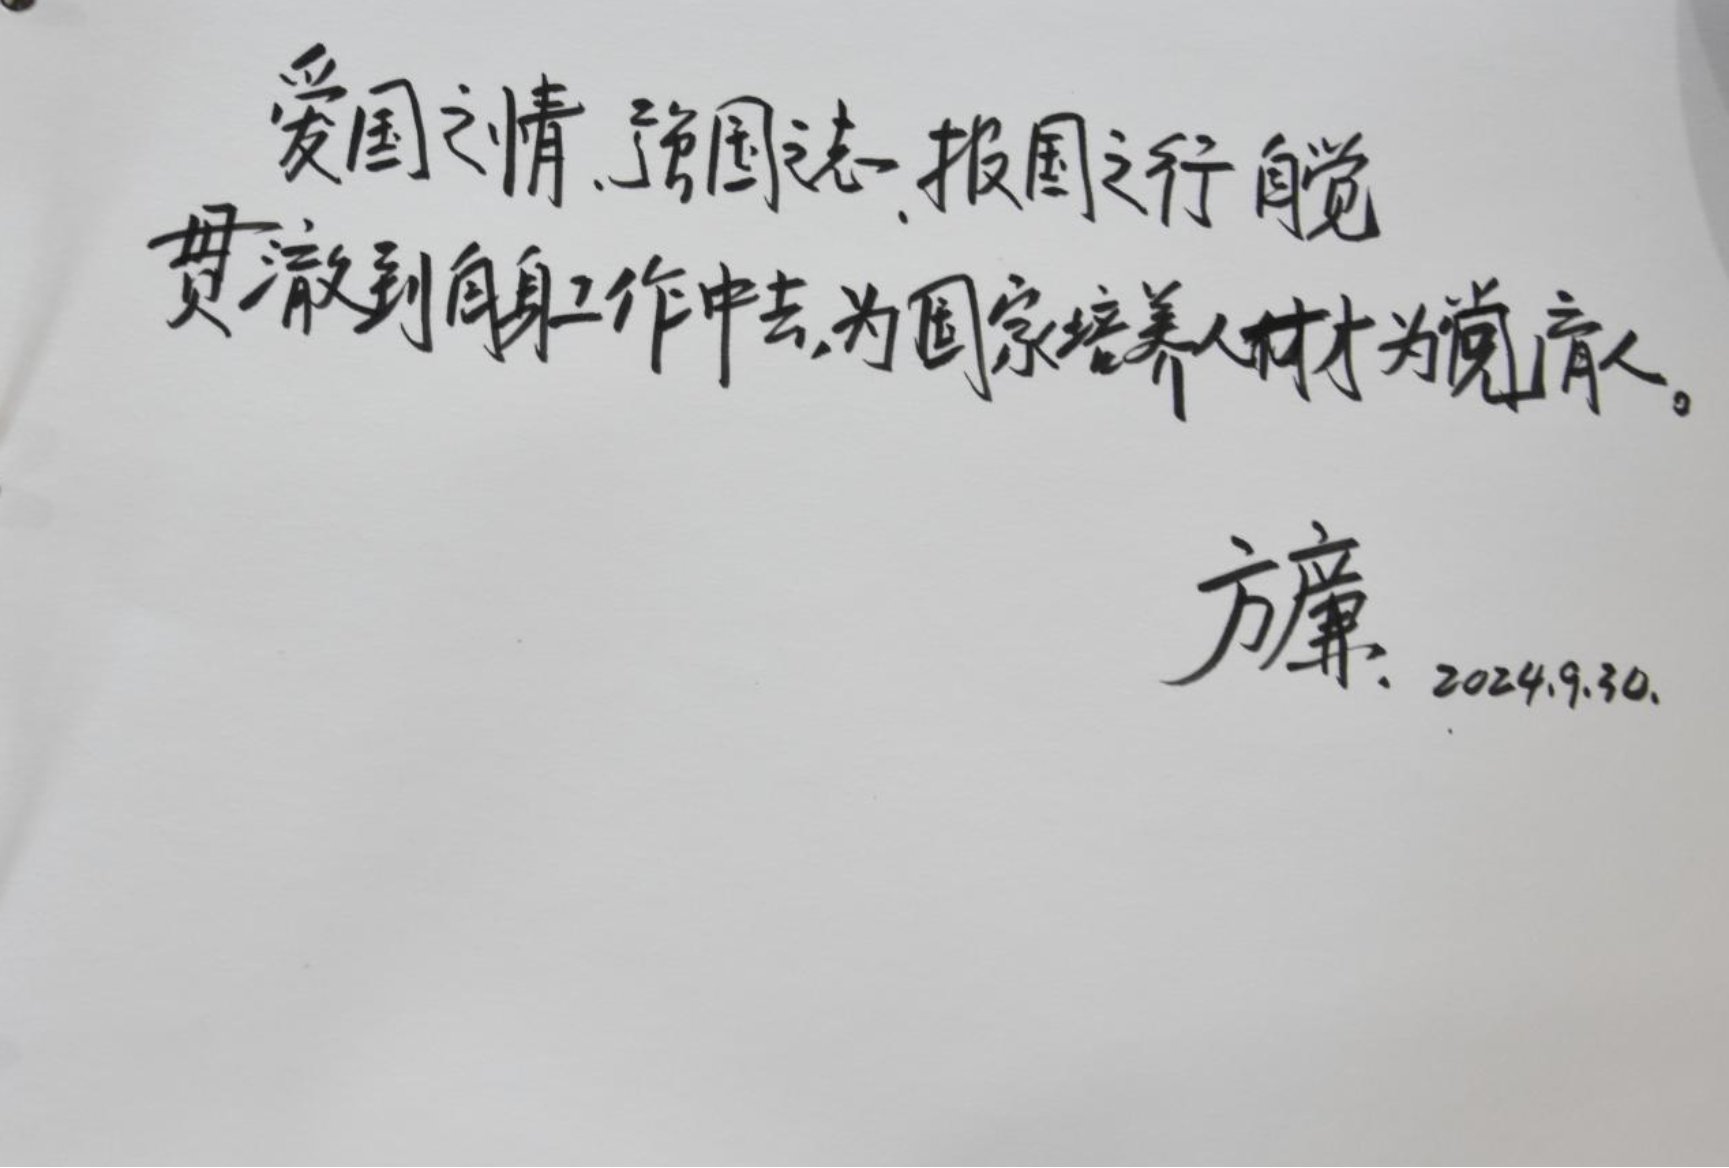 爱国之情、强国之志、报国之行自觉
贯澈到自身工作中去,为国家培养人材才为党育人。
方廉. 2024.9.30.